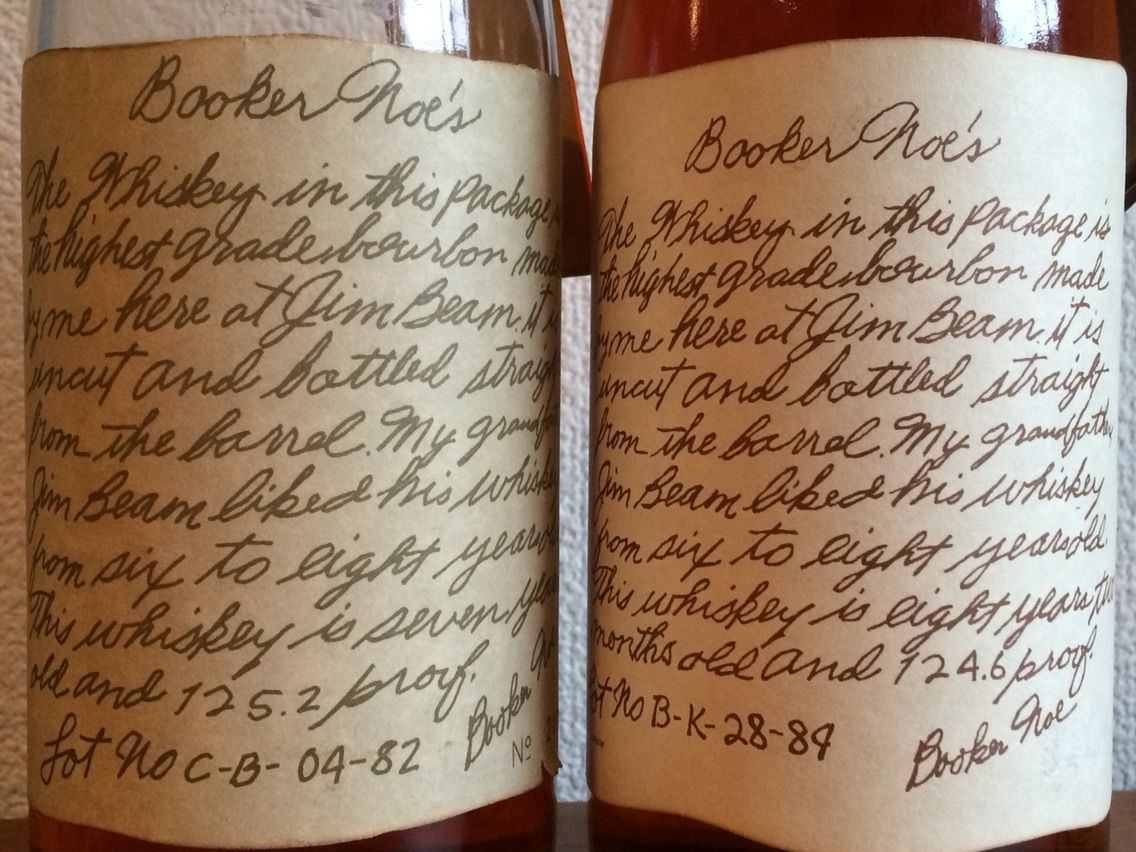 Booker Noe's
The Whiskey in this package
the highest grade bourbon made
by me here at Jim Beam. it is
uncut and bottled straight
from the barrel. My
Jim Beam liked his whiskey
from six to eight years
This whiskey is seven years
old and 125.2 proof.
Lot No C-B-04-82
Booker
Nº
Booker Noe's
The Whiskey in this package is
the highest grade bourbon made
by me here at Jim Beam. it is
uncut and bottled straight
from the barrel. My grandfather
Jim Beam liked his whiskey
from six to eight years old.
This whiskey is eight years two
months old and 124.6 proof.
Lot No B-K-28-84
Booker Noe